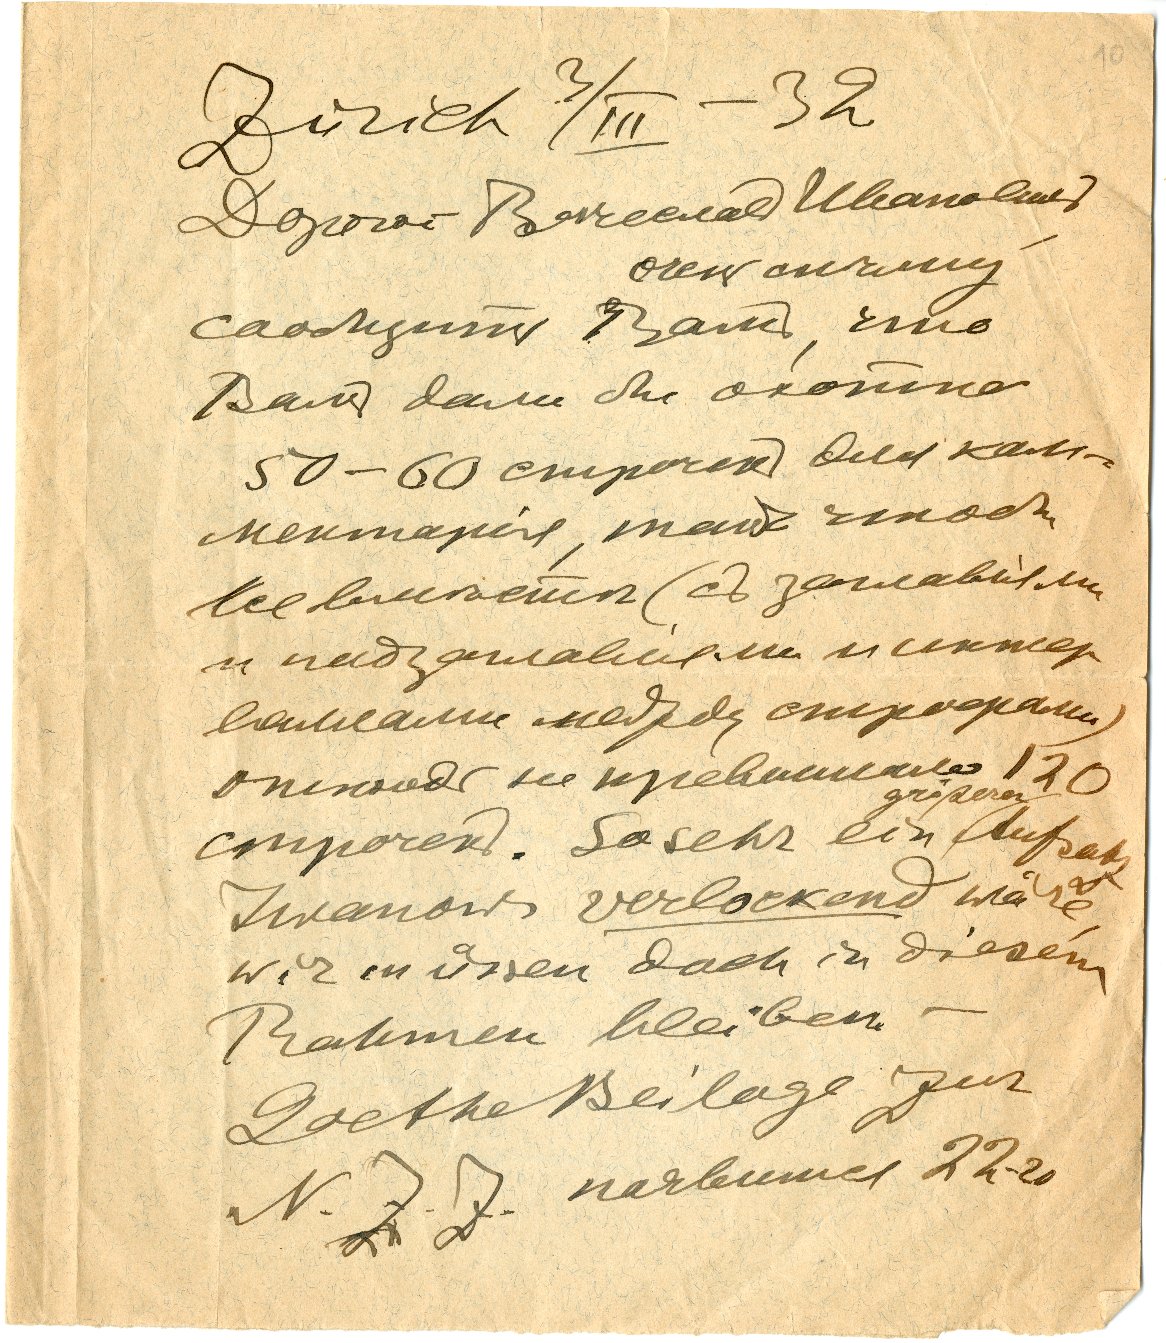 10
Zürich 3/III – 32
Дорогой Вячеславъ Ивановичъ
очень спѣшу
сообщить Вамъ, что
Вамъ дали бы охотно
50–60 строчекъ для ком-
ментарія, такъ чтобы
все вмѣстѣ (съ заглавіями
и подзаглавіями и интер
валами между строфами)
не превышало 120
строчекъ. So sehr ein größerer Aufsatz
Iwanows verlockend wäre
wir müssen doch in diesem
Rahmen bleiben –
Goethe Beilage zur
N. Z. Z. 22-го